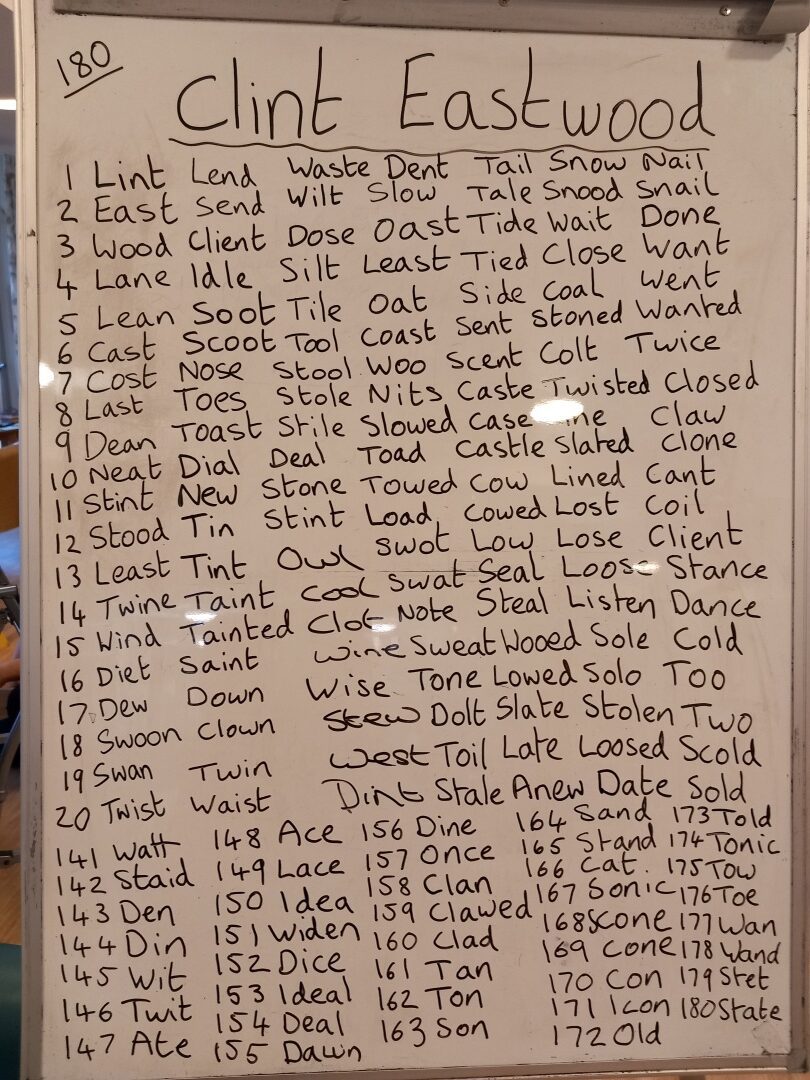 180
Clint Eastwood
1 Lint Lend Waste Dent Tail Snow Nail
2 East Send Wilt Slow Tale Snood Snail
3 Wood Client Dose Oast Tide Wait Done
4 Lane Idle Silt Least Tied Close Want
5 Lean Soot Tile Oat Side Coal Went
6 Cast Scoot Tool Coast Sent Stoned Wanted
7 Cost Nose Stool Woo Scent Colt Twice
8 Last Toes Stole Nits Caste Twisted Closed
9 Dean Toast Stile Slowed Case Claw
10 Neat Dial Deal Toad Castle Slated Clone
11 Stint New Stone Towed Cow Lined Cant
12 Stood Tin Stint Load Cowed Lost Coil
13 Least Tint Owl Swot Low Lose Client
14 Twine Taint Cool Swat Seal Loose Stance
15 Wind Tainted Clot Note Steal Listen Dance
16 Diet Saint Wine Sweat Wooed Sole Cold
17 Dew Down Wise Tone Lowed Solo Too
18 Swoon Clown Stew Dolt Slate Stolen Two
19 Swan Twin West Toil Late Loosed Scold
20 Twist Waist Dint Stale Anew Date Sold
141 Watt 148 Ace 156 Dine 164 Sand 173 Told
142 Staid 149 Lace 157 Once 165 Stand 174 Tonic
143 Den 150 Idea 158 Clan 166 Cat. 175 Tow
144 Din 151 Widen 159 Clawed 167 Sonic 176 Toe
145 Wit 152 Dice 160 Clad 168 Scone 177 Wan
146 Twit 153 Ideal 161 Tan 169 Cone 178 Wand
147 Ate 154 Deal 162 Ton 170 Con 179 Stet
155 Dawn 163 Son 171 Icon 180 State
172 Old